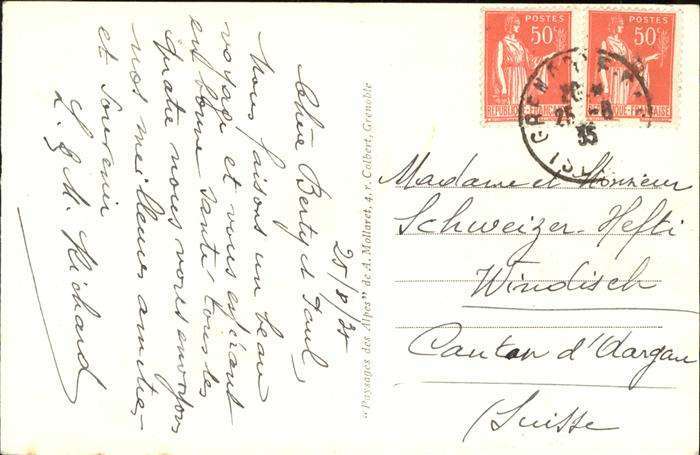 25/8/35
Chère Berty et Paul,
Nous faisons un beau
voyage et vous espérant
en bonne santé tous les
quatre nous vous envoyons
nos meilleures amitiés
et souvenir
M. Richard
"Paysages des Alpes" de A. Mollaret, 4, r. Colbert, Grenoble
POSTES
50c
REPUBLIQUE FRANÇAISE
POSTES
50c
REPUBLIQUE FRANÇAISE
GRENOBLE
25 -8
35
Madame et Monsieur
Schweizer-Hefti
Windisch
Canton d'Aargau
(Suisse